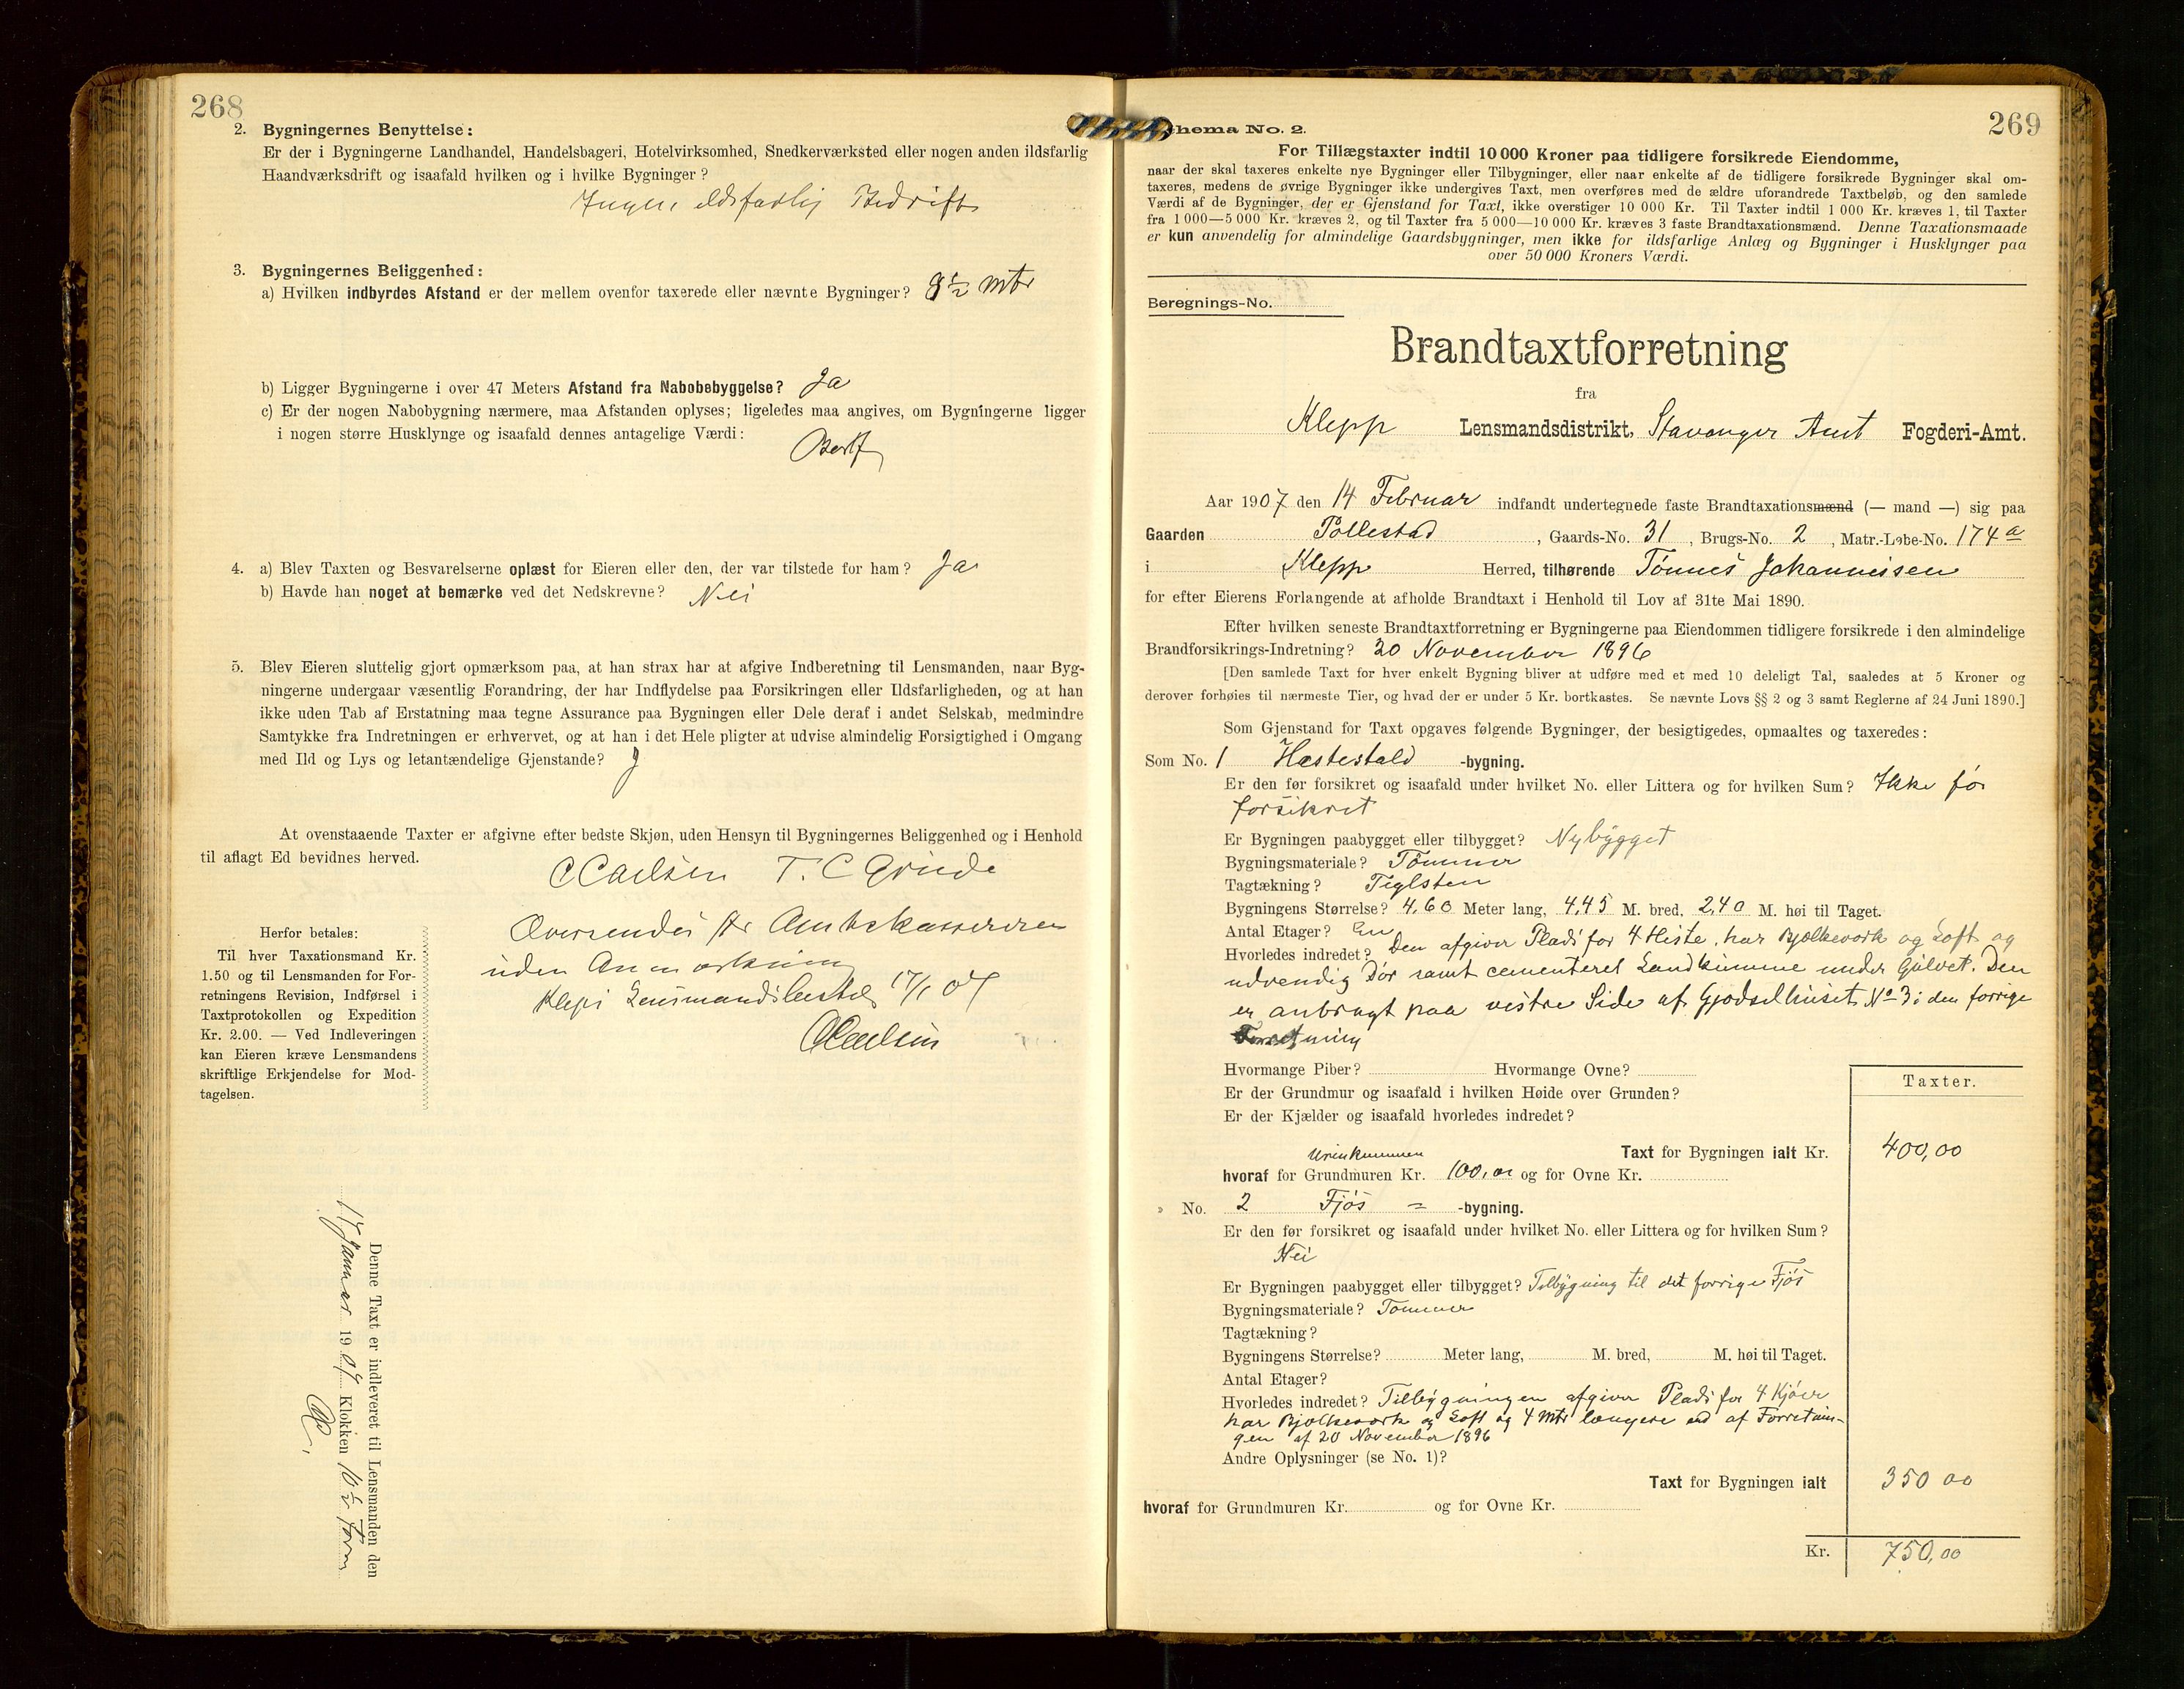 268
2. Bygningernes Benyttelse:
Er der i Bygningerne Landhandel, Handelsbageri, Hotelvirksomhed, Snedkerværksted eller nogen anden ildsfarlig
Haandværksdrift og isaafald hvilken og i hvilke Bygninger?
Ingen ildsfarlig Bedrift
3. Bygningernes Beliggenhed:
a) Hvilken indbyrdes Afstand er der mellem ovenfor taxerede eller nævnte Bygninger? 9½ Mtr
b) Ligger Bygningerne i over 47 Meters Afstand fra Nabobebyggelse? Ja
c) Er der nogen Nabobygning nærmere, maa Afstanden oplyses; ligeledes maa angives, om Bygningerne ligger
i nogen større Husklynge og isaafald dennes antagelige Værdi:
Bortf
4. a) Blev Taxten og Besvarelserne oplæst for Eieren eller den, der var tilstede for ham? Ja
b) Havde han noget at bemærke ved det Nedskrevne? Nei
5. Blev Eieren sluttelig gjort opmærksom paa, at han strax har at afgive Indberetning til Lensmanden, naar Byg-
ningerne undergaar væsentlig Forandring, der har Indflydelse paa Forsikringen eller Ildsfarligheden, og at han
ikke uden Tab af Erstatning maa tegne Assurance paa Bygningen eller Dele deraf i andet Selskab, medmindre
Samtykke fra Indretningen er erhvervet, og at han i det Hele pligter at udvise almindelig Forsigtighed i Omgang
med Ild og Lys og letantændelige Gjenstande? J
At ovenstaaende Taxter er afgivne efter bedste Skjøn, uden Hensyn til Bygningernes Beliggenhed og i Henhold
til aflagt Ed bevidnes herved.
C Carlsen T. C Grude
Oversendes Hr Amtskassereren
uden Anmærkning
Klepp Lensmandsbestil 17/1 07
C Carlsen
Herfor betales:
Til hver Taxationsmand Kr.
1.50 og til Lensmanden for For-
retningens Revision, Indførsel i
Taxtprotokollen og Expedition
Kr. 2.00. — Ved Indleveringen
kan Eieren kræve Lensmandens
skriftlige Erkjendelse for Mod-
tagelsen.
Denne Taxt er indleveret til Lensmanden den
17 Januar 1907 Klokken 10½ Form
269
hema No. 2.
For Tillægstaxter indtil 10 000 Kroner paa tidligere forsikrede Eiendomme,
naar der skal taxeres enkelte nye Bygninger eller Tilbygninger, eller naar enkelte af de tidligere forsikrede Bygninger skal om-
taxeres, medens de øvrige Bygninger ikke undergives Taxt, men overføres med de ældre uforandrede Taxtbeløb, og den samlede
Værdi af de Bygninger, der er Gjenstand for Taxt, ikke overstiger 10 000 Kr. Til Taxter indtil 1 000 Kr. kræves 1, til Taxter
fra 1 000—5 000 Kr. kræves 2, og til Taxter fra 5 000—10 000 Kr. kræves 3 faste Brandtaxationsmænd. Denne Taxationsmaade
er kun anvendelig for almindelige Gaardsbygninger, men ikke for ildsfarlige Anlæg og Bygninger i Husklynger paa
over 50 000 Kroners Værdi.
Beregnings-No.
Brandtaxtforretning
fra
Klepp Lensmandsdistrikt, Stavanger Amt Fogderi-Amt.
Aar 1907 den 14 Februar indfandt undertegnede faste Brandtaxationsmænd (— mand —) sig paa
Gaarden Pollestad, Gaards-No. 31, Brugs-No. 2, Matr.-Løbe-No. 174a
i Klepp Herred, tilhørende Tønnes Johannesen
for efter Eierens Forlangende at afholde Brandtaxt i Henhold til Lov af 31te Mai 1890.
Efter hvilken seneste Brandtaxtforretning er Bygningerne paa Eiendommen tidligere forsikrede i den almindelige
Brandforsikrings-Indretning? 20 November 1896
[Den samlede Taxt for hver enkelt Bygning bliver at udføre med et med 10 deleligt Tal, saaledes at 5 Kroner og
derover forhøies til nærmeste Tier, og hvad der er under 5 Kr. bortkastes. Se nævnte Lovs §§ 2 og 3 samt Reglerne af 24 Juni 1890.]
Som Gjenstand for Taxt opgaves følgende Bygninger, der besigtigedes, opmaaltes og taxeredes:
Som No. 1 Hestestald -bygning.
Er den før forsikret og isaafald under hvilket No. eller Littera og for hvilken Sum? Ikke før
forsikret
Er Bygningen paabygget eller tilbygget? Nybygget
Bygningsmateriale? Tømmer
Tagtækning? Teglsten
Bygningens Størrelse? 4,60 Meter lang, 4,45 M. bred, 2,40 M. høi til Taget.
Antal Etager? En
Hvorledes indredet? Den afgiver Plads for 4 Heste, har Bjelkeverk og Loft og
udvendig Dør samt cementeret Landkumme under Gulvet. Den
er anbragt paa vestre Side af Gjødselhuset No 3 i den forrige
Forretning
Hvormange Piber? Hvormange Ovne?
Er der Grundmur og isaafald i hvilken Høide over Grunden?
Er der Kjælder og isaafald hvorledes indredet?
Taxter.
Taxt for Bygningen ialt Kr. 400,00
Urinkummen
hvoraf for Grundmuren Kr. 100,00 og for Ovne Kr.
» No. 2 Fjøs = -bygning.
Er den før forsikret og isaafald under hvilket No. eller Littera og for hvilken Sum?
Nei
Er Bygningen paabygget eller tilbygget? Tilbygning til det forrige Fjøs
Bygningsmateriale? Tømmer
Tagtækning?
Bygningens Størrelse? Meter lang, M. bred, M. høi til Taget.
Antal Etager?
Hvorledes indredet? Tilbygningen afgiver Plads for 4 Kjøer
har Bjelkeverk og Loft og 4 Mtr længere end af Forretnin-
gen af 20 November 1896
Andre Oplysninger (se No. 1)?
Taxt for Bygningen ialt 350 00
hvoraf for Grundmuren Kr. og for Ovne Kr.
Kr. 750,00